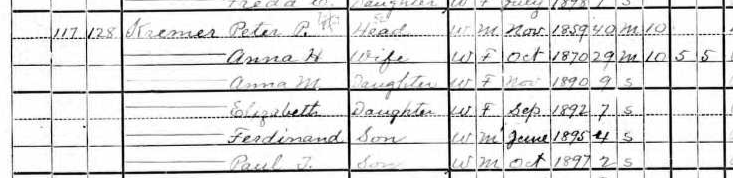 Freda Daughter W F July 1898 1 S
117 128 Kremer Peter P. Head W M Nov 1859 40 M 10
Anna H Wife W F Oct 1870 29 M 10 5 5
Anna M Daughter W F Nov 1890 9 S
Elizabeth Daughter W F Sep 1892 7 S
Ferdinand Son W M June 1895 4 S
Paul J. Son W M Oct 1897 2 S